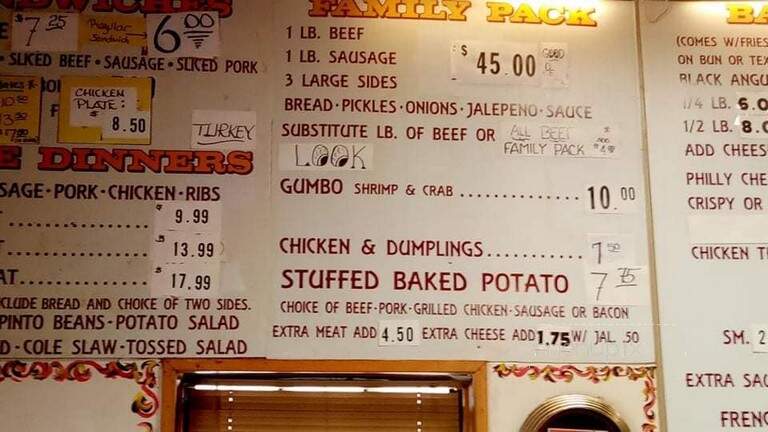 $ 7.25 Regular Sandwich 6.00
SLICED BEEF · SAUSAGE · SLICED PORK
CHICKEN
PLATE:
$ 8.50
TURKEY
DINNERS
PORK · CHICKEN · RIBS
$ 9.99
$ 13.99
$ 17.99
BREAD AND CHOICE OF TWO SIDES.
PINTO BEANS · POTATO SALAD
COLE SLAW · TOSSED SALAD
FAMILY PACK
1 LB. BEEF
1 LB. SAUSAGE
3 LARGE SIDES
$ 45.00
BREAD · PICKLES · ONIONS · JALEPENO · SAUCE
SUBSTITUTE LB. OF BEEF OR ALL BEEF
FAMILY PACK
LOOK
GUMBO SHRIMP & CRAB ............... 10.00
CHICKEN & DUMPLINGS ............ 7.50
STUFFED BAKED POTATO 7.75
CHOICE OF BEEF · PORK · GRILLED CHICKEN · SAUSAGE OR BACON
EXTRA MEAT ADD 4.50 EXTRA CHEESE ADD 1.75 W/ JAL .50
(COMES W/FRIES
ON BUN OR
BLACK
1/4 LB.
1/2 LB.
ADD
PHILLY
CRISPY OR
CHICKEN
SM.
EXTRA